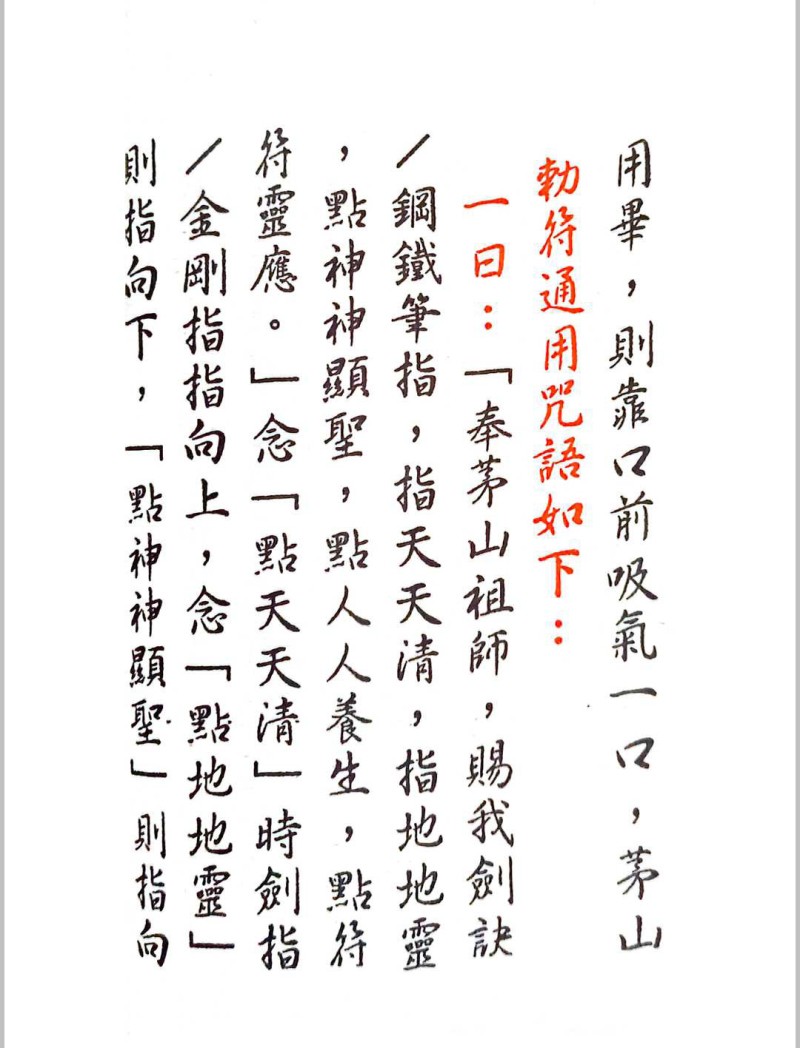 用畢，則靠口前吸氣一口，茅山
勅符通用咒語如下：
一曰：「奉茅山祖師，賜我劍訣
／鋼鐵筆指，指天天清，指地地靈
，點神神顯聖，點人人養生，點符
符靈應。」念「點天天清」時劍指
／金剛指指向上，念「點地地靈」
則指向下，「點神神顯聖」則指向